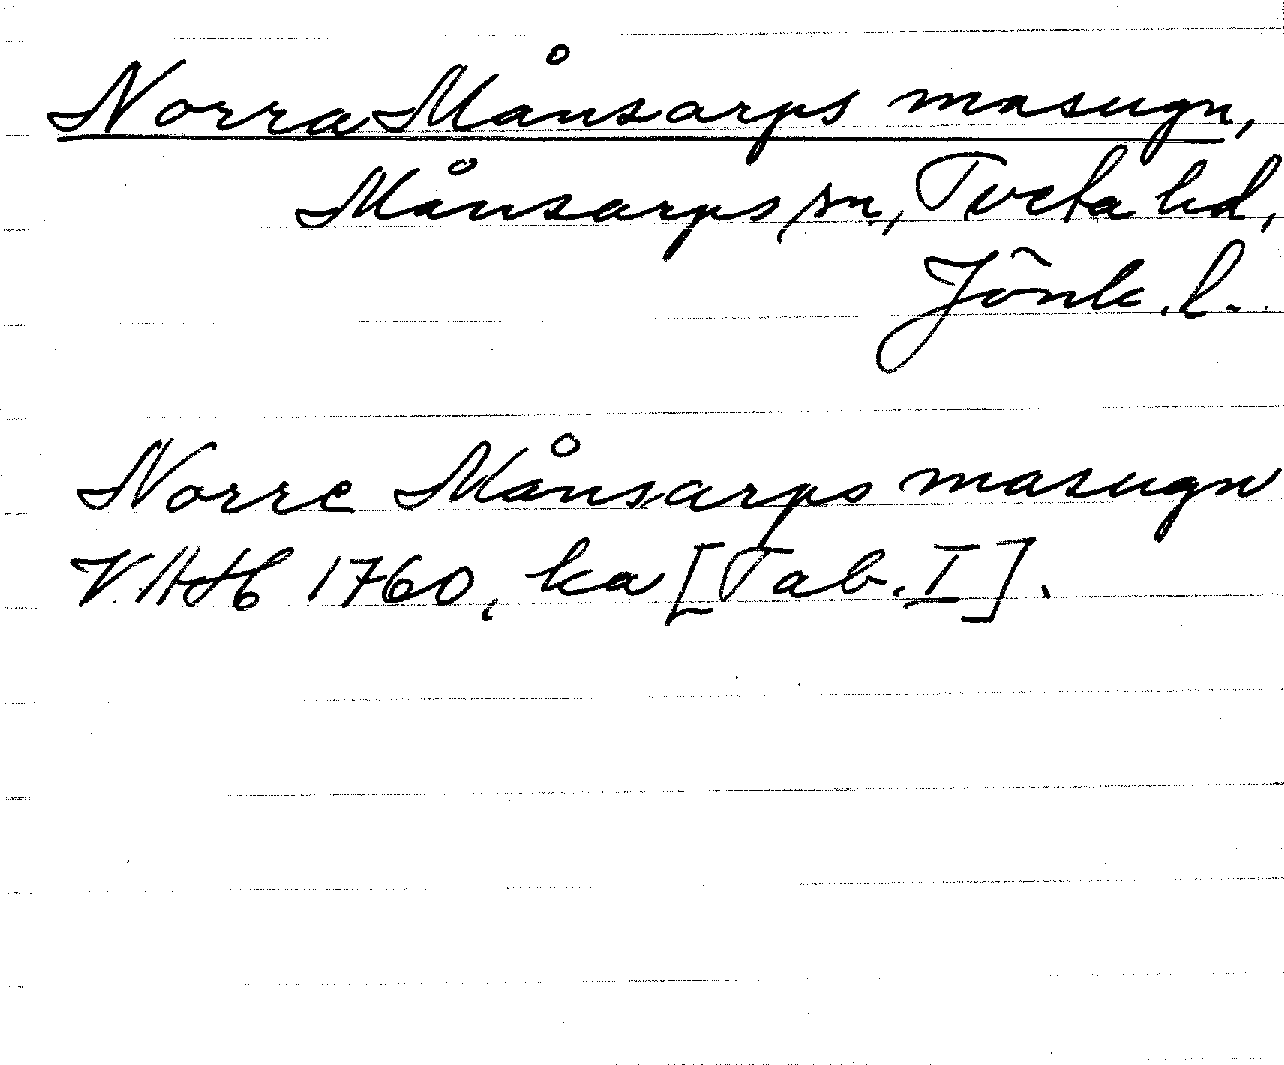 Norra Månsarps masugn,
Månsarps sn, Tveta hd,
Jönk. l.
Norre Månsarps masugn
VAH 1760, ka [Tab. I].